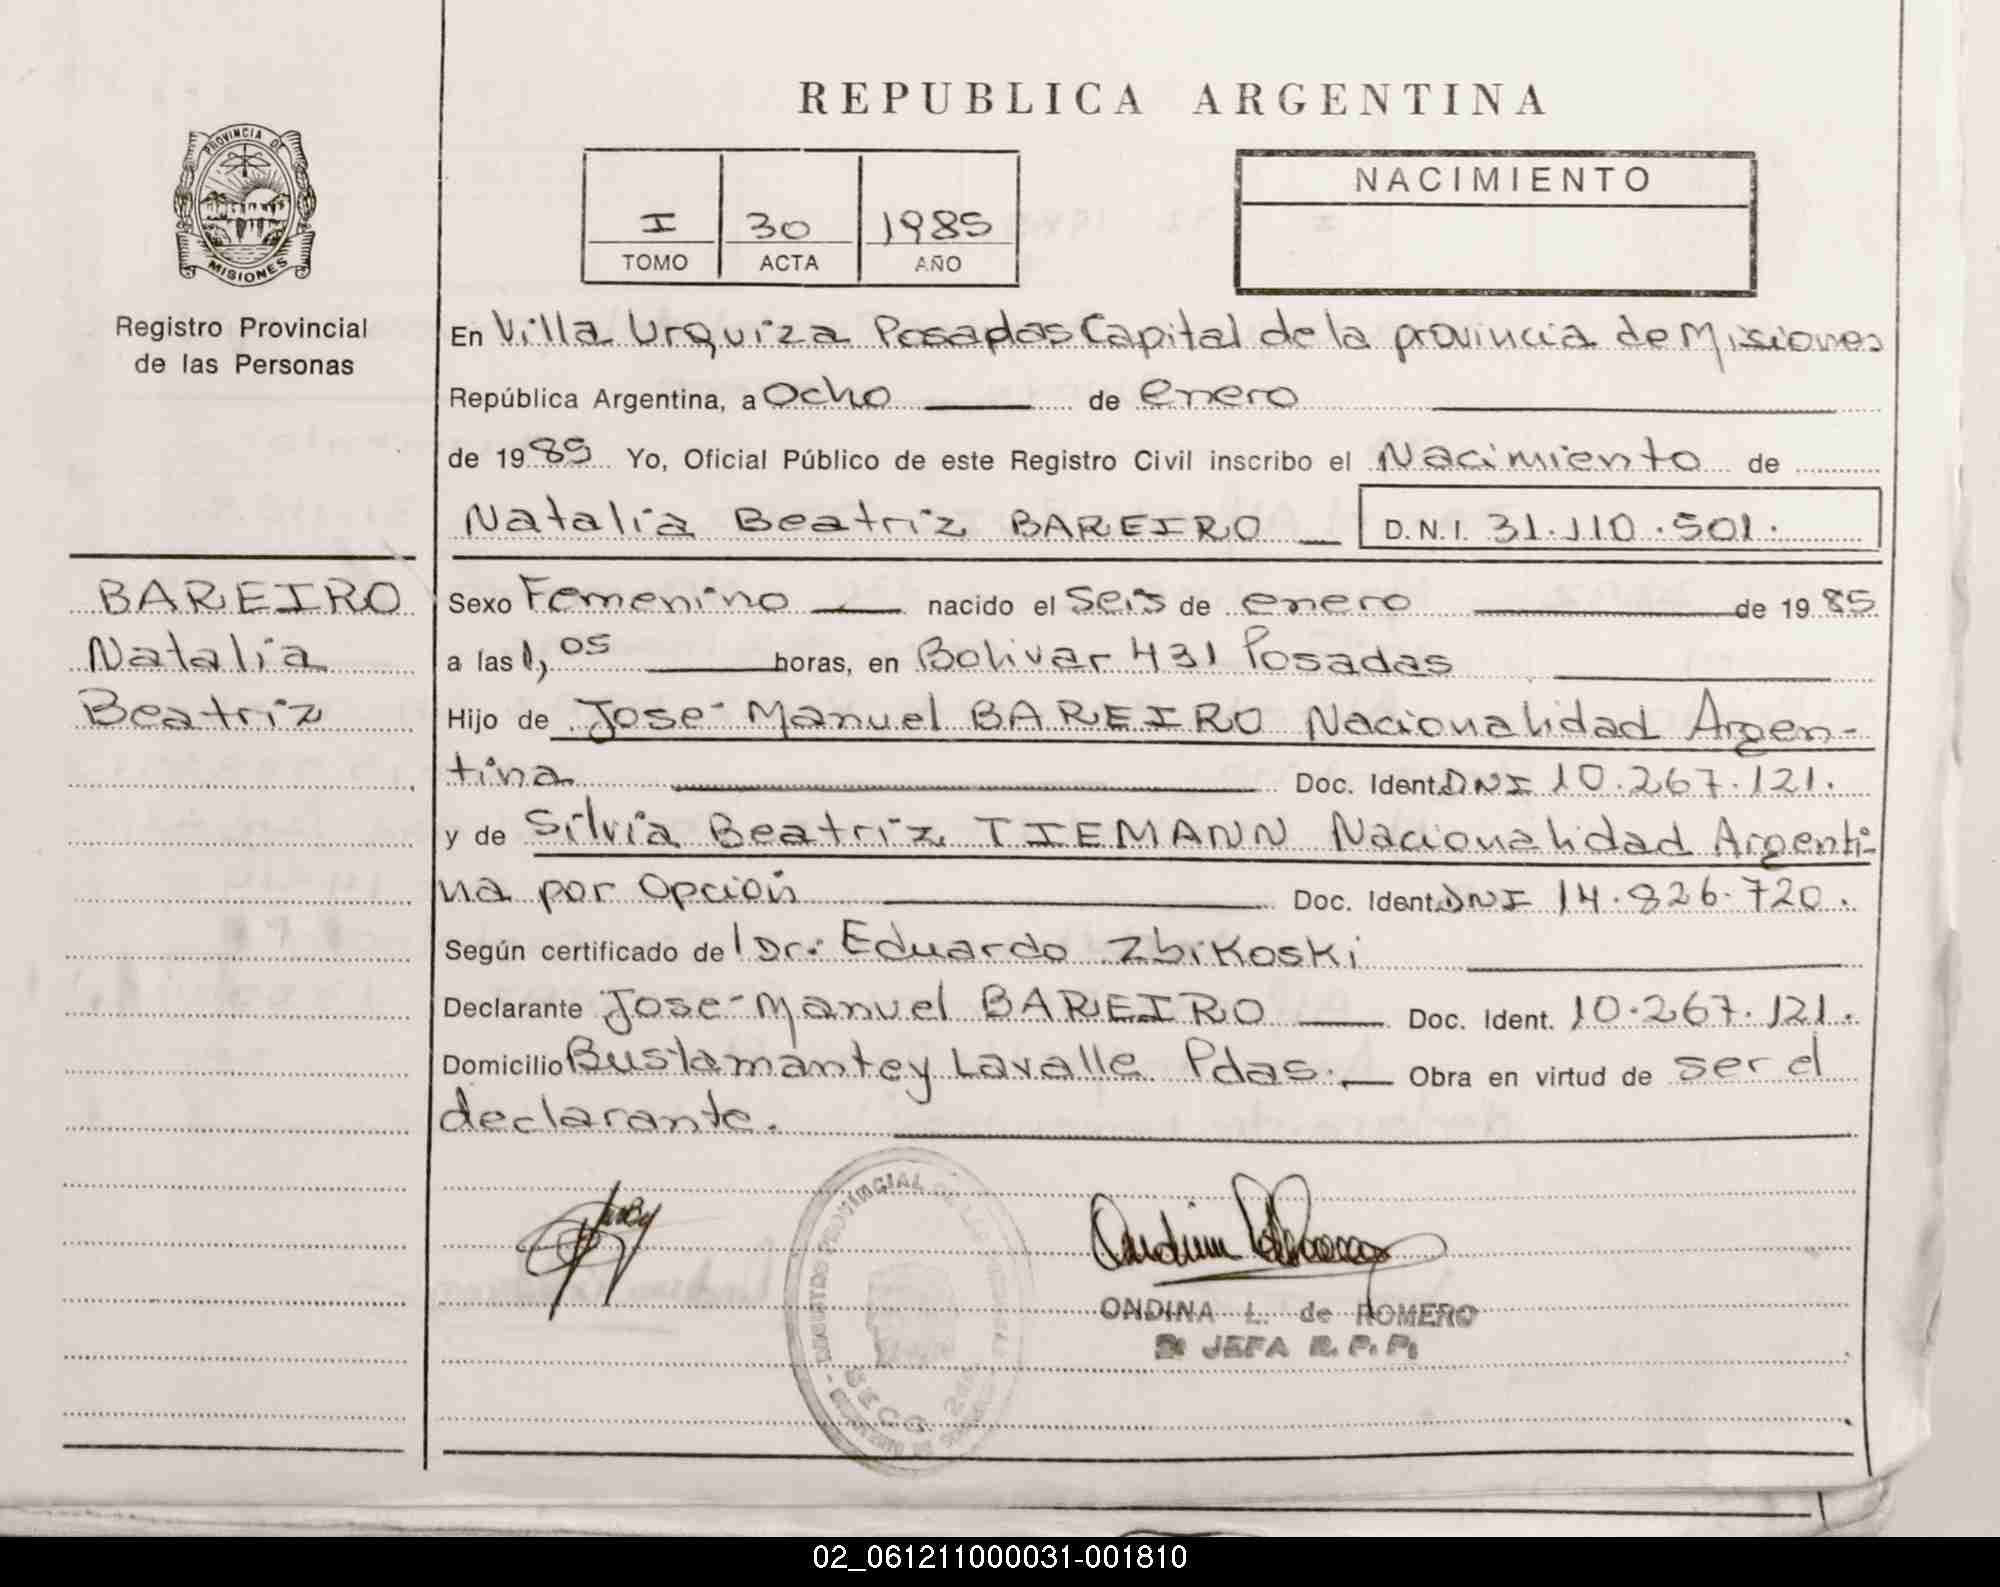 REPUBLICA ARGENTINA
PROVINCIA DE
MISIONES
Registro Provincial
de las Personas
I 30 1985
TOMO ACTA AÑO
NACIMIENTO
En Villa Urquiza Posadas Capital de la provincia de Misiones
República Argentina, a Ocho de enero
de 1985 Yo, Oficial Público de este Registro Civil inscribo el Nacimiento de
Natalia Beatriz BAREIRO D.N.I. 31.110.501.
BAREIRO
Natalia
Beatriz
Sexo Femenino nacido el Seis de enero de 1985
a las 1,05 horas, en Bolivar 431 Posadas
Hijo de José Manuel BAREIRO Nacionalidad Argen-
tina Doc. Ident. DNI 10.267.121.
y de Silvia Beatriz TIEMANN Nacionalidad Argenti-
na por Opción Doc. Ident. DNI 14.826.720.
Según certificado de l Dr. Eduardo Zbikoski
Declarante José Manuel BAREIRO Doc. Ident. 10.267.121.
Domicilio Bustamante y Lavalle Pdas. Obra en virtud de ser el
declarante.
REGISTRO PROVINCIAL DE LAS
ONDINA L. de ROMERO
JEFA R. P. P.
02_061211000031-001810